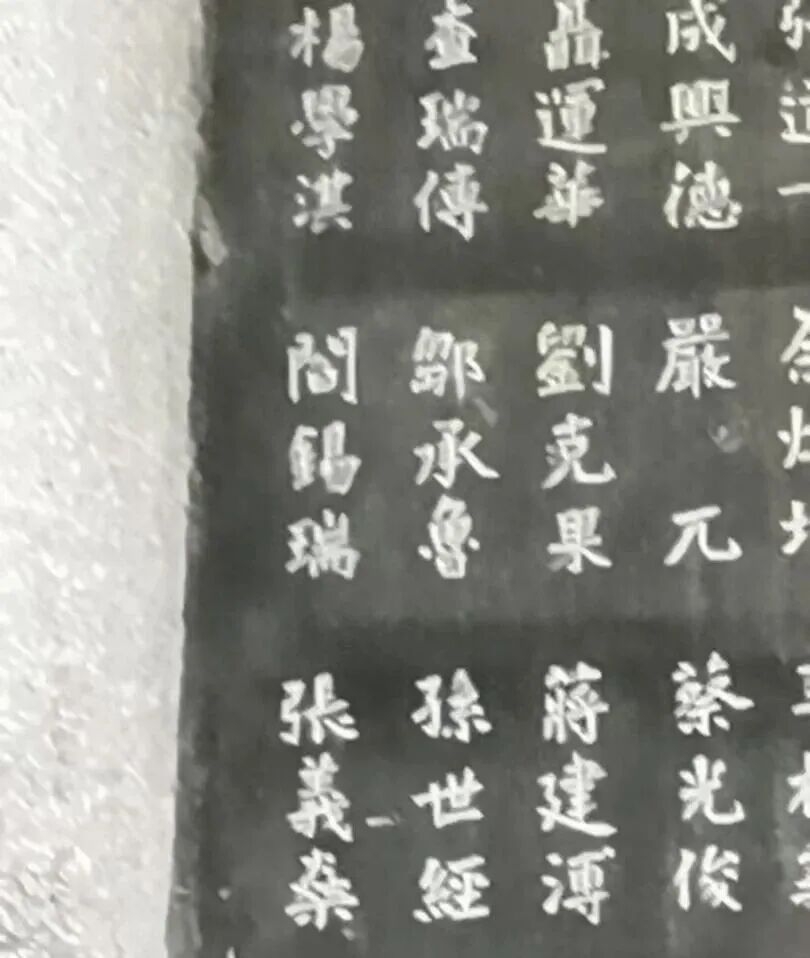 成興德
聶運華
查瑞傅
楊學淇
嚴元
劉克果
鄒承魯
閻錫瑞
蔡光俊
蔣建溥
孫世經
張義桑